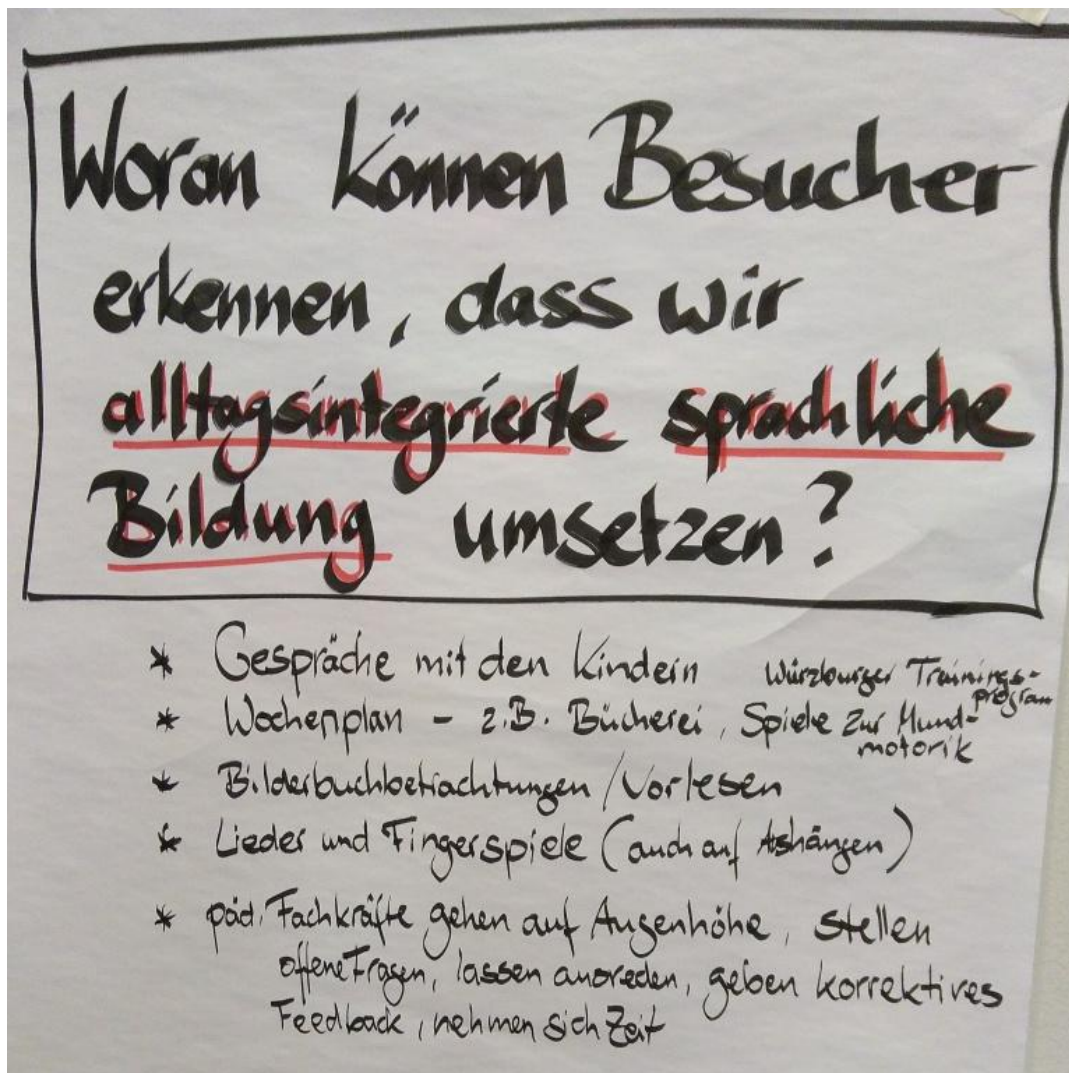 Woran können Besucher
erkennen, dass wir
alltagsintegrierte sprachliche
Bildung umsetzen?
* Gespräche mit den Kindern Würzburger Trainings-
program
* Wochenplan - z.B. Bücherei, Spiele zur Mund-
motorik
* Bilderbuchbetrachtungen / Vorlesen
* Lieder und Fingerspiele (auch auf Aushängen)
* päd. Fachkräfte gehen auf Augenhöhe, stellen
offene Fragen, lassen ausreden, geben korrektives
Feedback, nehmen sich Zeit